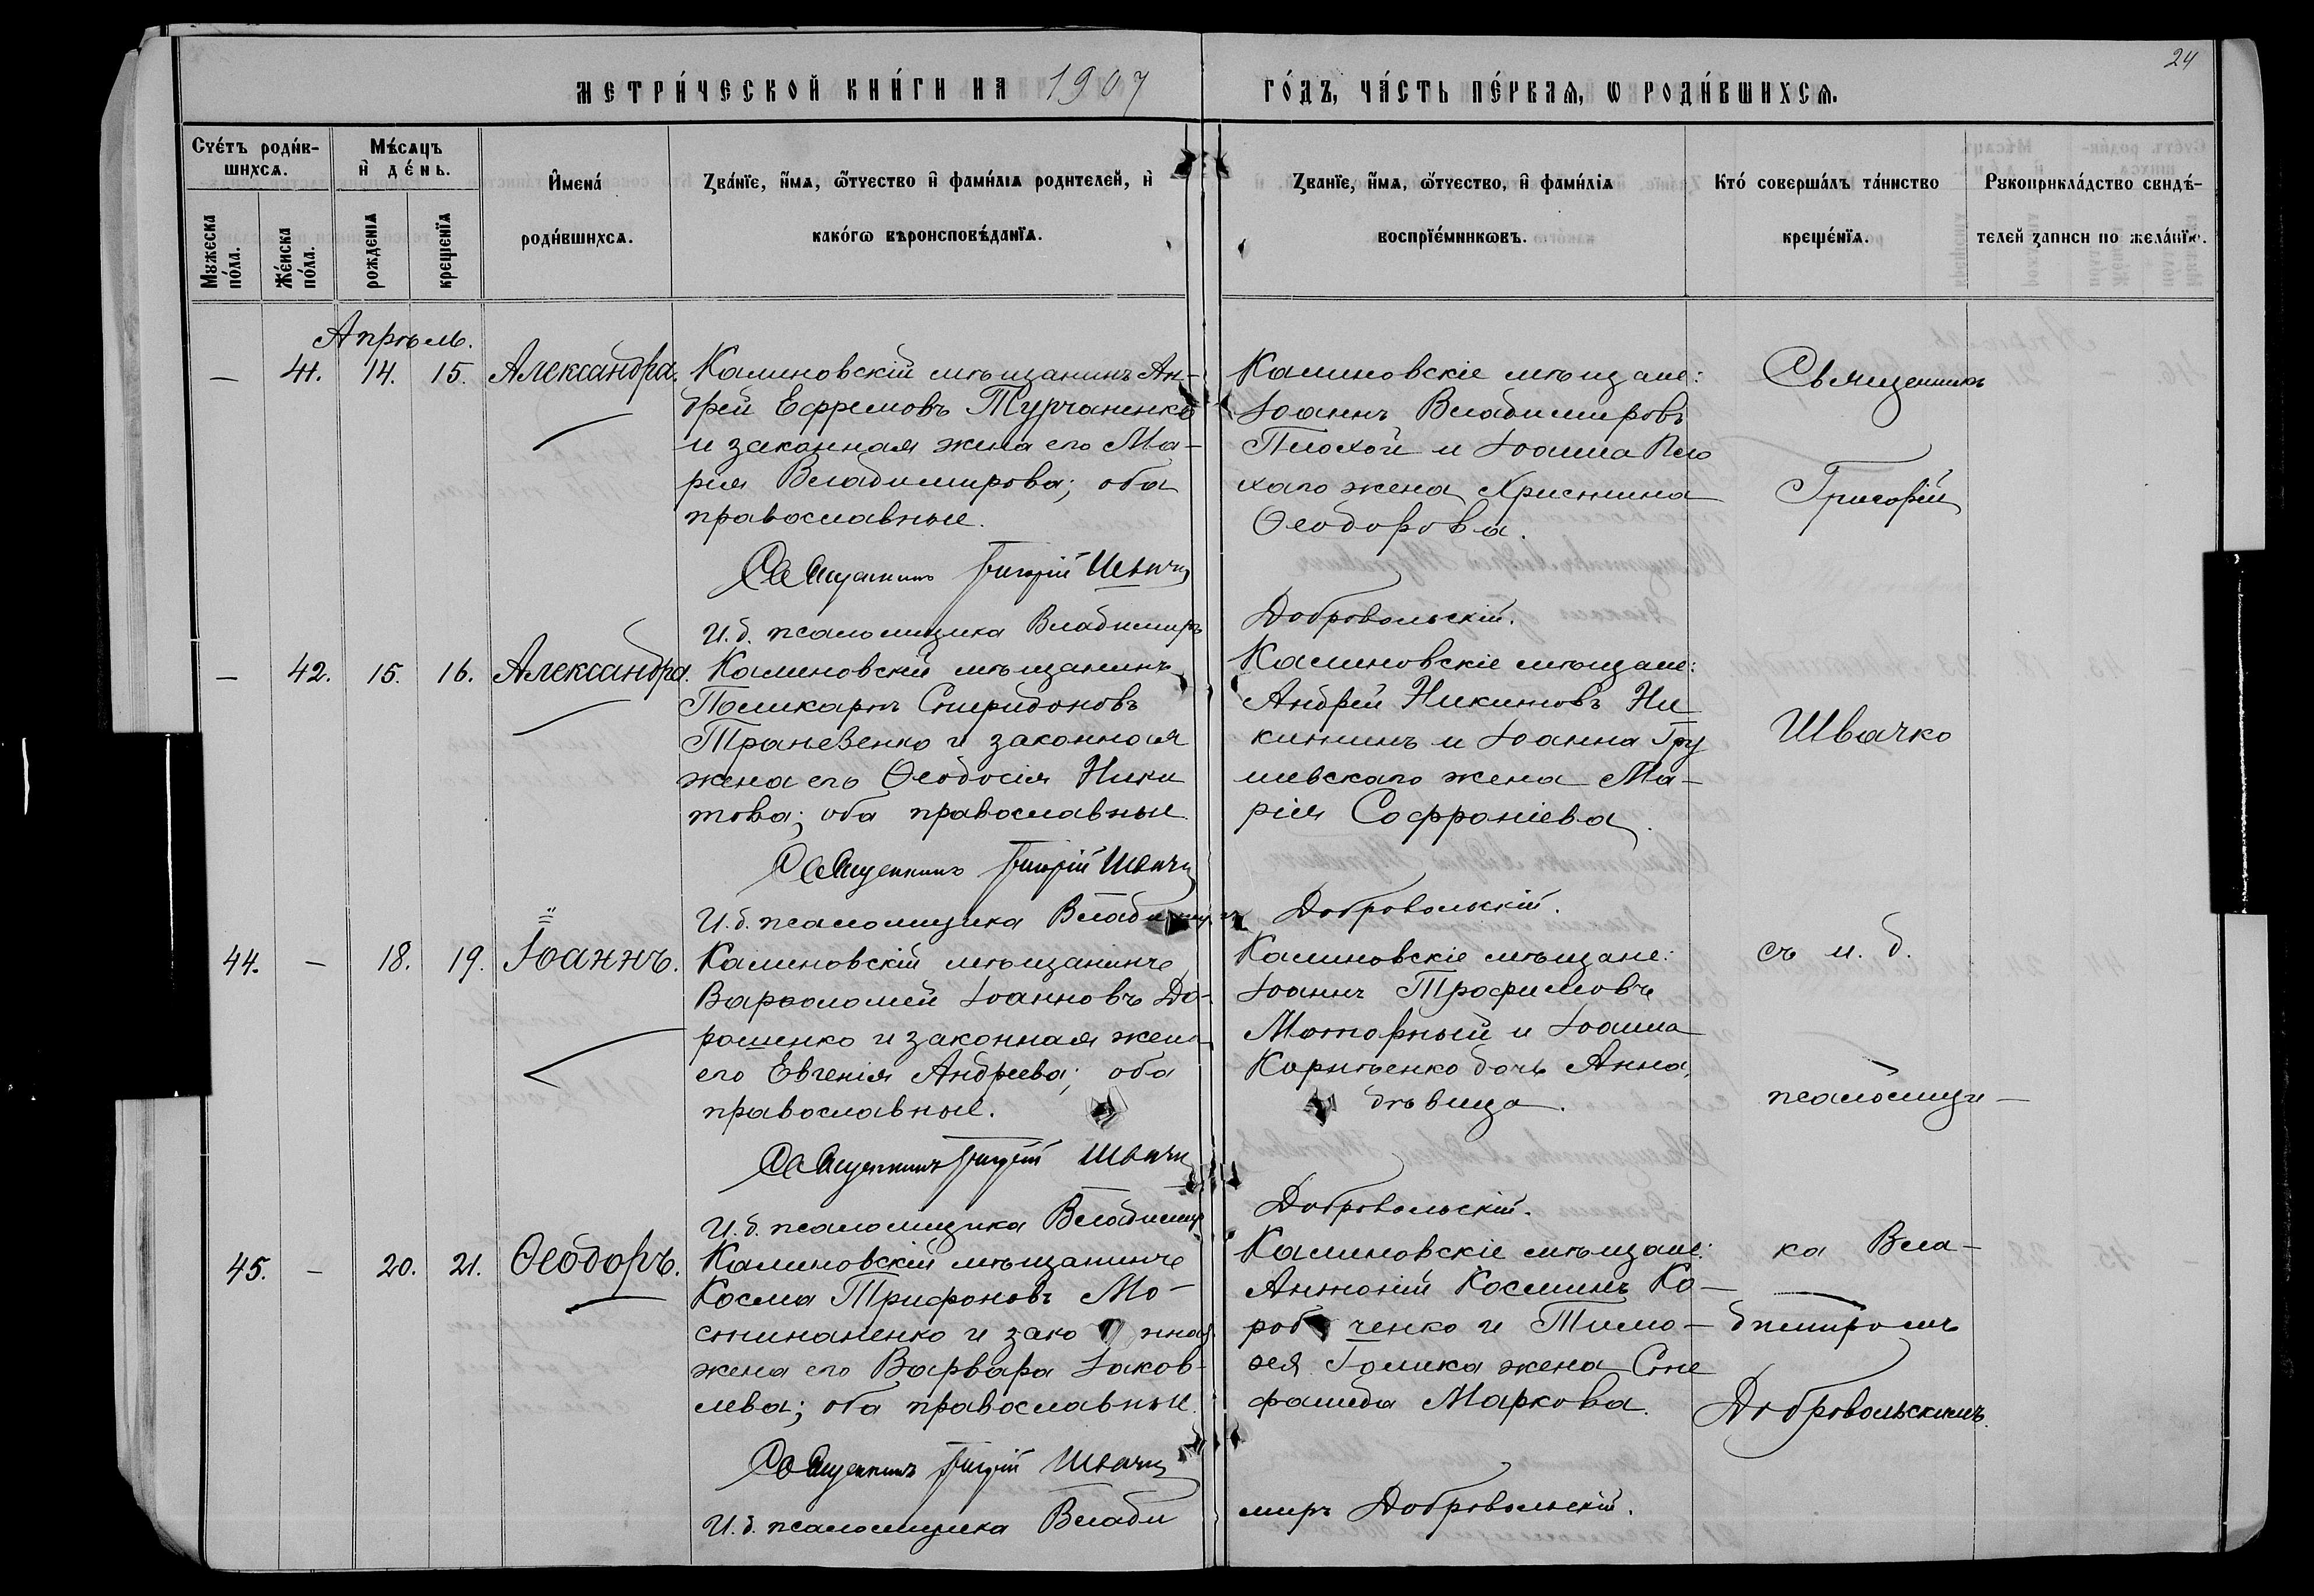 24
МЕТРИ́ЧЕСКОЙ КНИ́ГИ НА 1907 ГО́ДЪ, ЧА́СТЬ ПЕ́РВАѦ, Ѡ РОДИ́ВШИХСѦ.
Сче́тъ роди́в-
шихсѧ.
Мꙋжеска
по́ла.
Же́нска
по́ла.
Мѣ́сѧцъ
и҆ де́нь.
рожденїѧ
крещенїѧ
И҆мена́
роди́вшихсѧ.
Зва́нїе, и҆́мѧ, ѻ҆́тчество и҆ фами́лїѧ родителей, и҆
како́гѡ вѣроисповѣ́данїѧ.
Званїе, и҆́мѧ, ѻ҆́тчество, и҆ фами́лїѧ
воспрїе́мникѡвъ.
Кто́ соверша́лъ та́инство
креще́нїѧ.
Рꙋкоприкла́дство свидѣ́-
телей записи по жела́нїю.
Апрѣль.
— 41. 14. 15. Александра.
Калиновскій мѣщанинъ Ан-
дрей Ефремовъ Турчаненко
и законная жена его Ма-
рія Владимирова; оба
православные.
Священникъ Григорій Швачко
И.д. псаломщика Владимиръ
Калиновскіе мѣщане:
Іоаннъ Владимировъ
Плохой и Іоанна Пло
хаго жена Христина
Ѳеодорова.
Добровольскій.
— 42. 15. 16. Александра.
Калиновскій мѣщанинъ
Поликарпъ Спиридоновъ
законная
жена его Ѳеодосія Ники
това; оба православные.
Священникъ Григорій Швачко
И.д. псаломщика Владимиръ
Калиновскіе мѣщане:
Андрей Никитовъ Ни
китинъ и Іоанна Гру
шевскаго жена Ма-
рія Софроніева.
Добровольскій.
44. — 18. 19. Іоаннъ.
Калиновскій мѣщанинъ
Варѳоломей Іоанновъ До-
рошенко и законная жена
его Евгенія Андреева; оба
православные.
Священникъ Григорій Швачко
И.д. псаломщика Владимир
Калиновскіе мѣщане:
Іоаннъ Трофимовъ
Моторный и Іоанна
дочь Анна,
дѣвица.
Добровольскій.
45. — 20. 21. Ѳеодоръ.
Калиновскій мѣщанинъ
Косма Трифоновъ Мо-
стипаненко и законная
жена его Варвара Іаков-
лева; оба православные.
Священникъ Григорій Швачко
И.д. псаломщика Влади
Калиновскіе мѣщане:
Антоній Косминъ Ко-
роб ченко и Тимо-
ѳея Голика жена Сте
фанида Маркова.
миръ Добровольскій.
Священникъ
Григорій
Швачко
съ и. д.
псаломщи-
ка Вла-
димиромъ
Добровольскимъ.